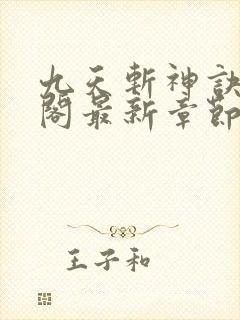 九天斬神訣
閣最新章節
王子和